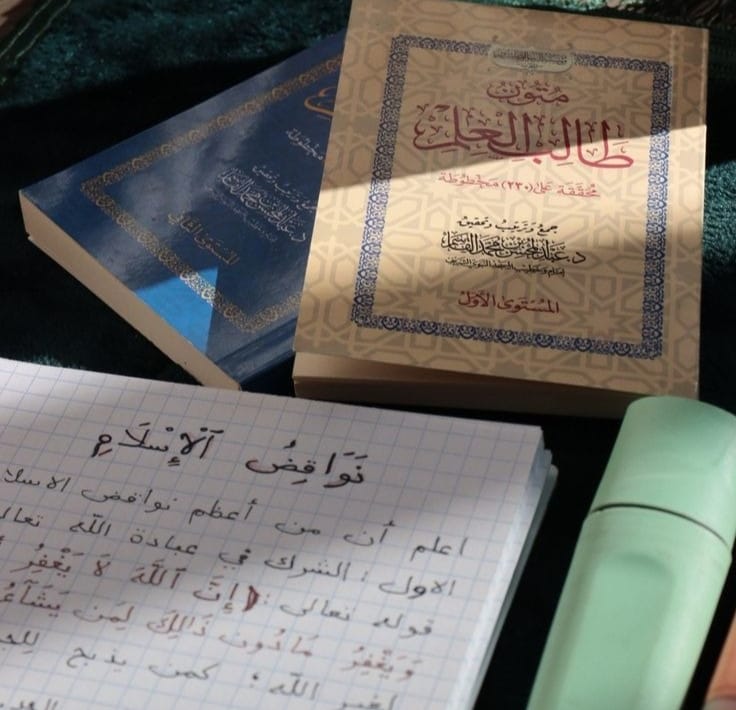 متون
طالب العلم
محققة على (٢٣٠) مخطوطة
جمع وترتيب وتحقيق
د. عبد المحسن بن محمد القاسم
إمام وخطيب المسجد النبوي الشريف
المستوى الأول
مخطوطة
وترتيب وتحقيق
المستوى الثاني
نَوَاقِضُ ٱلْإِسْلَامِ
اعلم أن من أعظم نواقض الاسلا
الاول : الشرك في عبادة الله تعال
قوله تعالى : ﴿إِنَّ ٱللَّهَ لَا يَغْفِرُ
وَيَغْفِرُ مَا دُونَ ذَٰلِكَ لِمَن يَشَآءُ
لغير الله : كمن يذبح للج